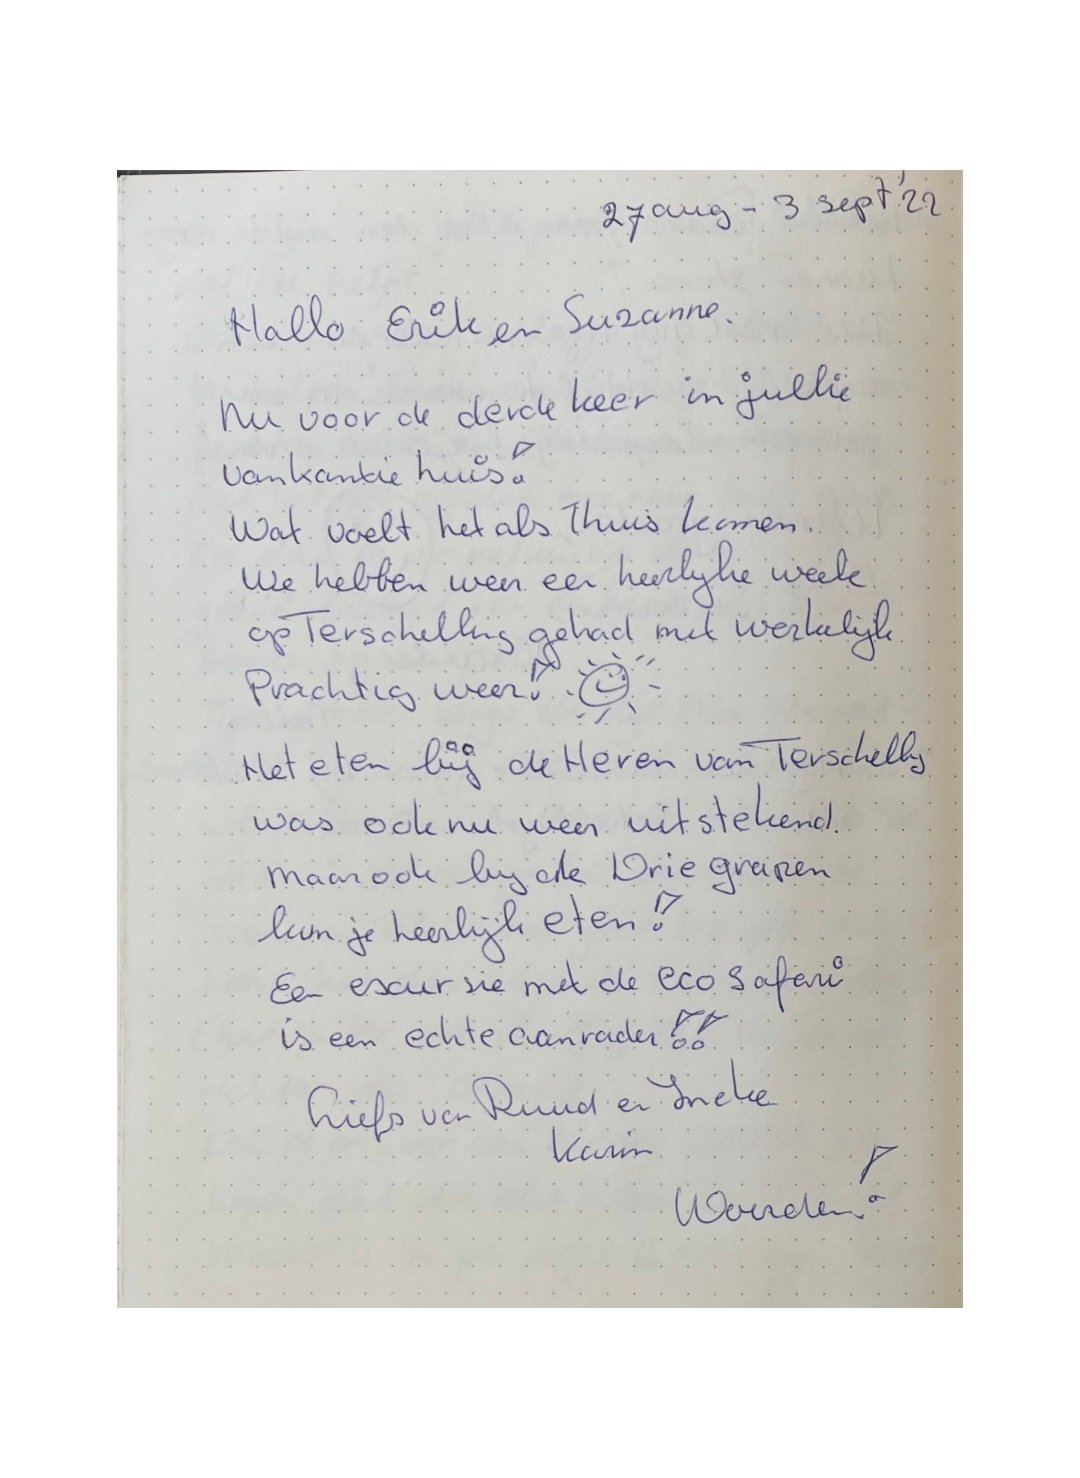 27 aug - 3 sept '22
Hallo Erik en Suzanne.
Nu voor de derde keer in jullie
vankantie huis!
Wat voelt het als Thuis komen.
We hebben weer een heerlijke week
op Terschelling gehad met werkelijk
Prachtig weer!
Het eten bij de Heren van Terschelling
was ook nu weer uitstekend.
maar ook bij de Drie grapen
kun je heerlijk eten!
Een excursie met de eco Safari
is een echte aanrader!!
Liefs van Ruud en Ineke
Karin
Woerden!